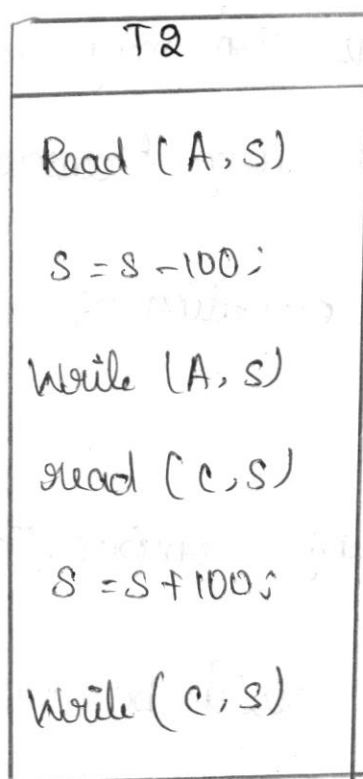 T2
Read (A, S)
S = S - 100;
Write (A, S)
read (C, S)
S = S + 100;
Write (C, S)